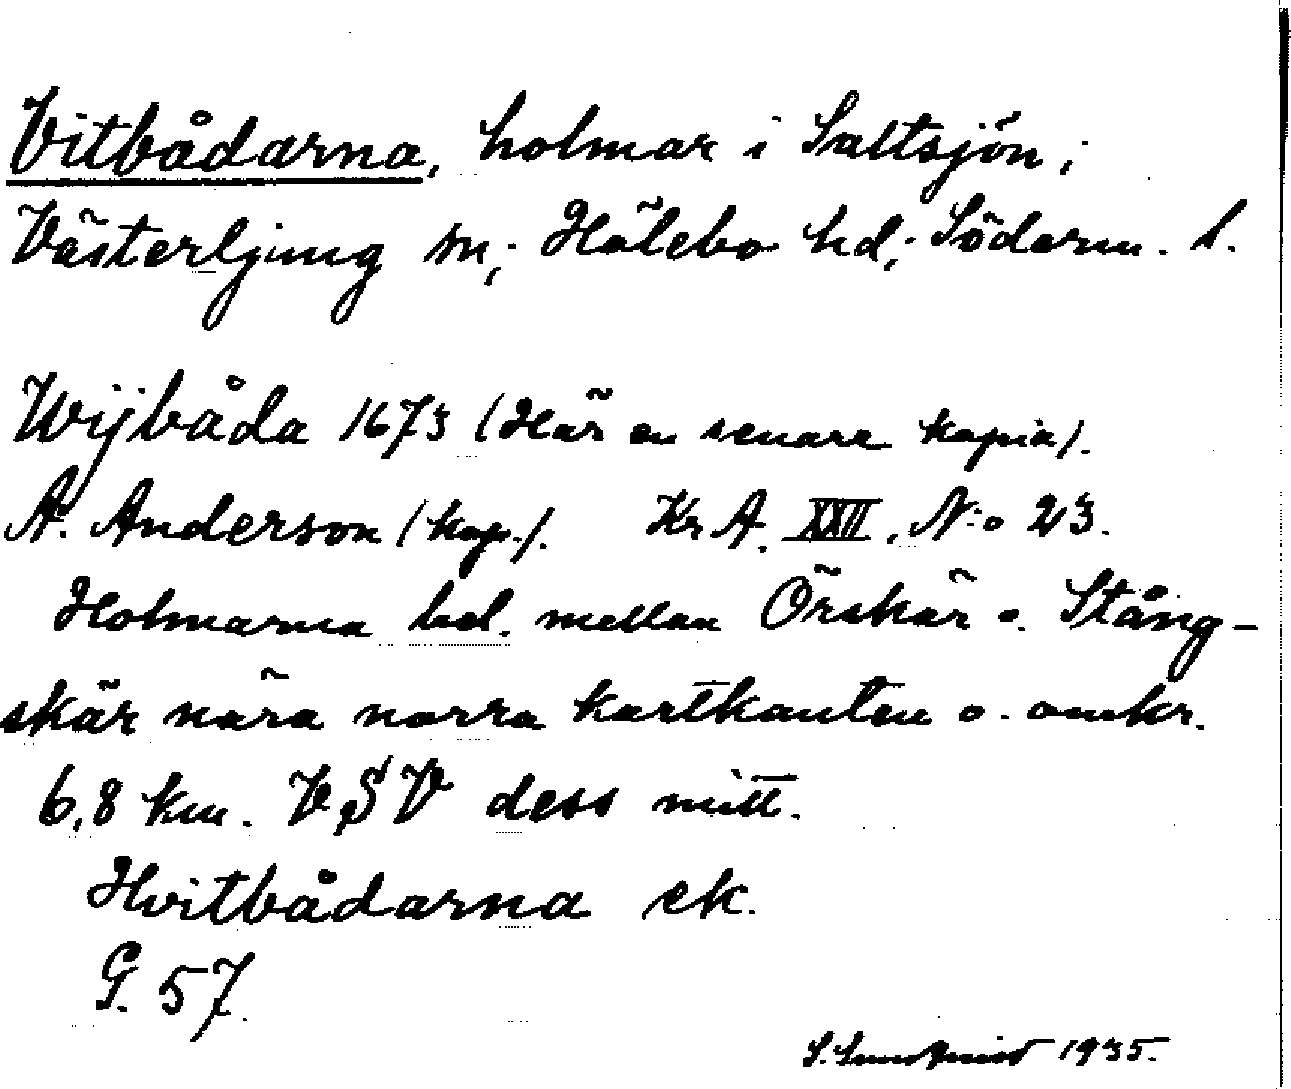 Vitbådarna, holmar i Saltsjön;
Västerljung sn; Hölebo hd; Söderm. l.
Wijbåda 1673 (Här en senare kopia).
A. Anderson (kop.). Kr A. XXII, N:o 23.
Holmarna bel. mellan Örskär o. Stång-
skär nära norra kartkanten o. omkr.
6,8 km. V$V dess mitt.
Hvitbådarna ek.
G. 57.
S. Lundqvist 1935.